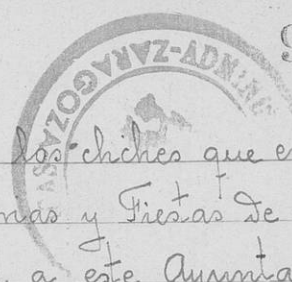 ZARAGOZA-ADMINI
los cliches que e
nas y Fiestas de
a este Ayunta